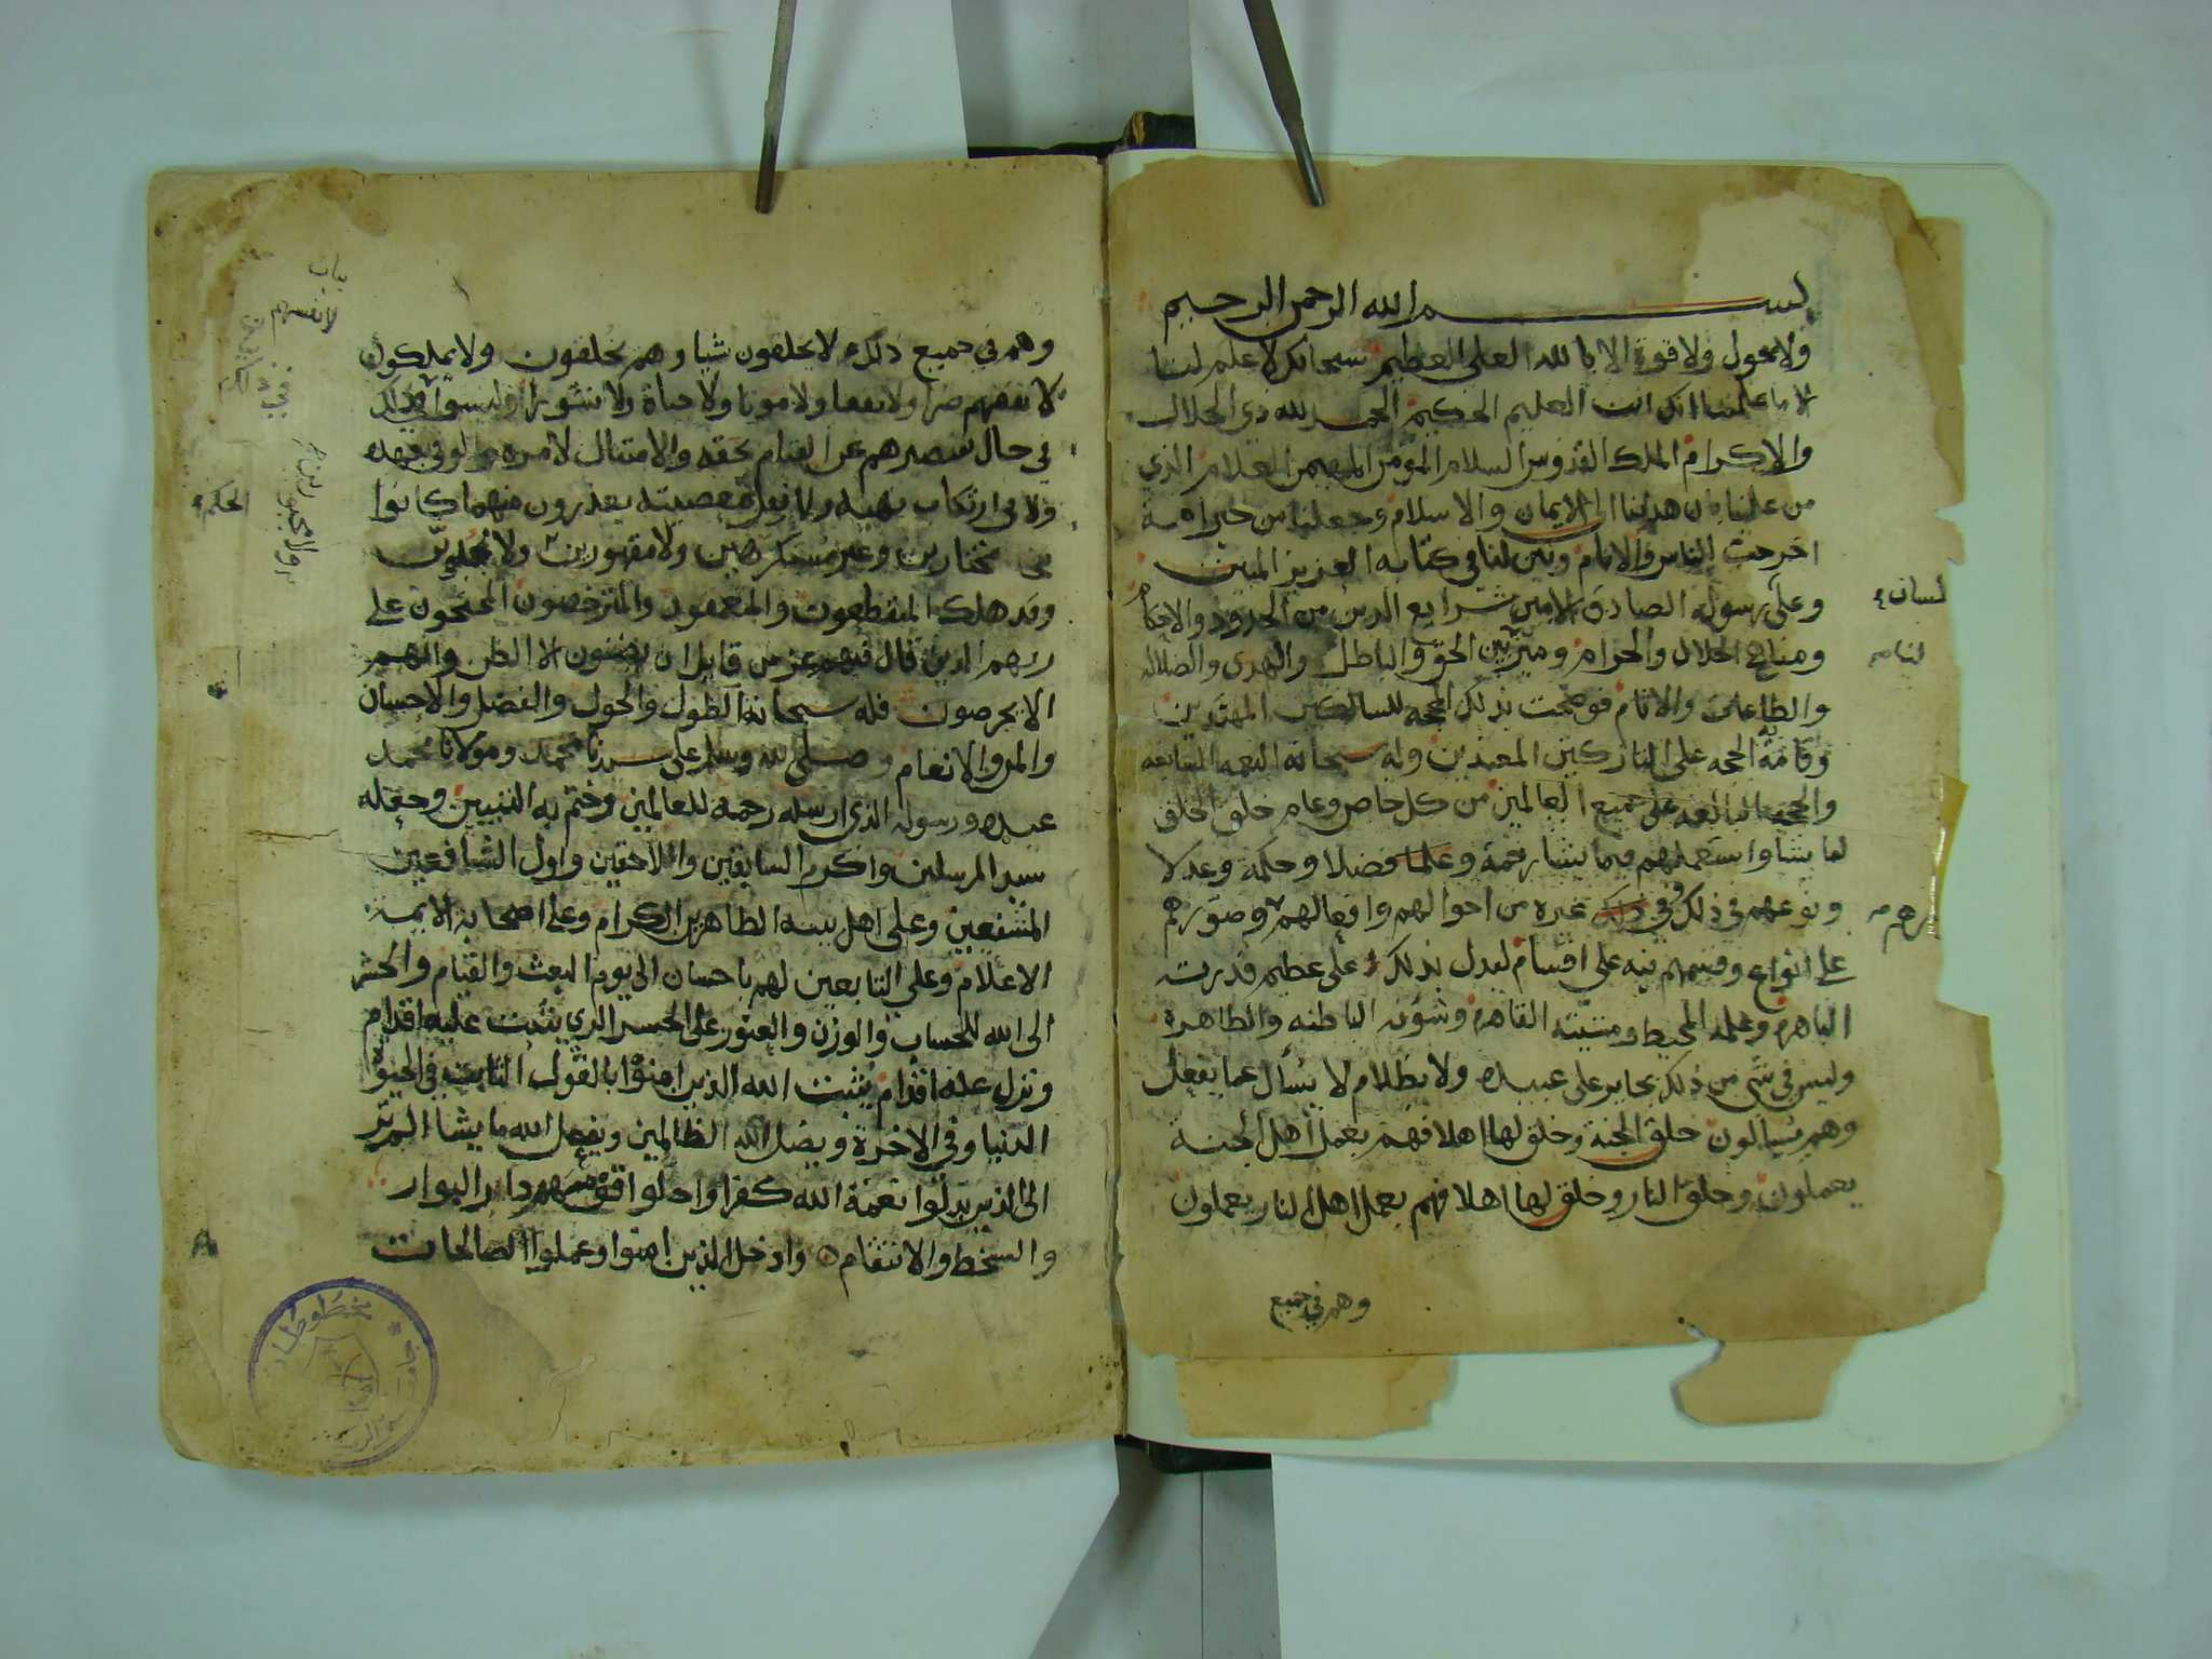 بسم الله الرحمن الرحيم
ولا حول ولا قوة الا بالله العلي العظيم سبحانك لا علم لنا
الا ما علمتنا انك انت العليم الحكيم الحمد لله ذي الجلال
والاكرام الملك القدوس السلام المؤمن المهيمن العلام الذي
من علينا بان هدينا الى الايمان والاسلام وجعلنا من خير امة
اخرجت للناس والانام وبين لنا في كتابه العزيز المبين
وعلى رسوله الصادق الامين شرايع الدين من الحدود والاحكام
لسان
ومناهج الحلال والحرام وميز بين الحق والباطل والهدى والضلاله
والطاعات والاثام فوضحت بذلك المحجه للسالكين المهتدين
وقامة به الحجه على التاركين المعتدين وله سبحانه النعمه السابغه
والحجه البالغه على جميع العالمين من كل خاص وعام خلق الخلق
لما يشا واستعملهم فيما يشا رحمة وعلما فضلا وحكمة وعدلا
ونوعهم في ذلك وفي غيره من احوالهم وافعالهم وصورهم
على انواع وقسمهم فيه على اقسام ليدل بذلك على عظيم قدرته
الباهره وعلمه المحيط ومشيته القاهره وشؤنه الباطنه والظاهرة
وليس في شي من ذلك بجاير على عبيده ولا بظلام لا يسأل عما يفعل
وهم يسالون خلق الجنة وخلق لها اهلا فهم بعمل اهل الجنة
يعملون وخلق النار وخلق لها اهلا فهم بعمل اهل النار يعملون
وهم في جميع
وهم في جميع ذلك لا يخلقون شيا وهم يخلقون ولا يملكون
لانفسهم
لا نفسهم ضرا ولا نفعا ولا موتا ولا حياة ولا نشورا وليسوا في ذلك
في حال تقصيرهم عن القيام بحقه والامتثال لامره
ولا في ارتكاب نهيه معصيته يعذرون مهما كانوا
الحكم
مختارين وغير مستكرهين ولا مقهورين ولا مجبورين
وقد هلك المتقطعون والمتعمقون والمترخصون المحتجون على
ربهم الذين قال فيهم عز من قايل ان يتبعون الا الظن وان هم
الا يخرصون فله سبحانه الطول والحول والفضل والاحسان
والمن والانعام وصلى الله وسلم على سيدنا محمد ومولانا محمد
عبده ورسوله الذي ارسله رحمه للعالمين وختم به النبيين وجعله
سيد المرسلين واكرم السابقين واللاحقين واول الشافعين
المشفعين وعلى اهل بيته الطاهرين الكرام وعلى اصحابه الايمة
الاعلام وعلى التابعين لهم باحسان الى يوم البعث والقيام والحشر
الى الله للحساب والوزن والعبور على الجسر الذي تثبت عليه اقدام
وتزل عنه اقدام يثبت الله الذين امنوا بالقول الثابت في الحيوة
الدنيا وفي الاخرة ويضل الله الظالمين ويفعل الله ما يشا الم تر
الى الذين بدلوا نعمة الله كفرا واحلوا قومهم دار البوار
والسخط والانتقام وادخل الذين امنوا وعملوا الصالحات